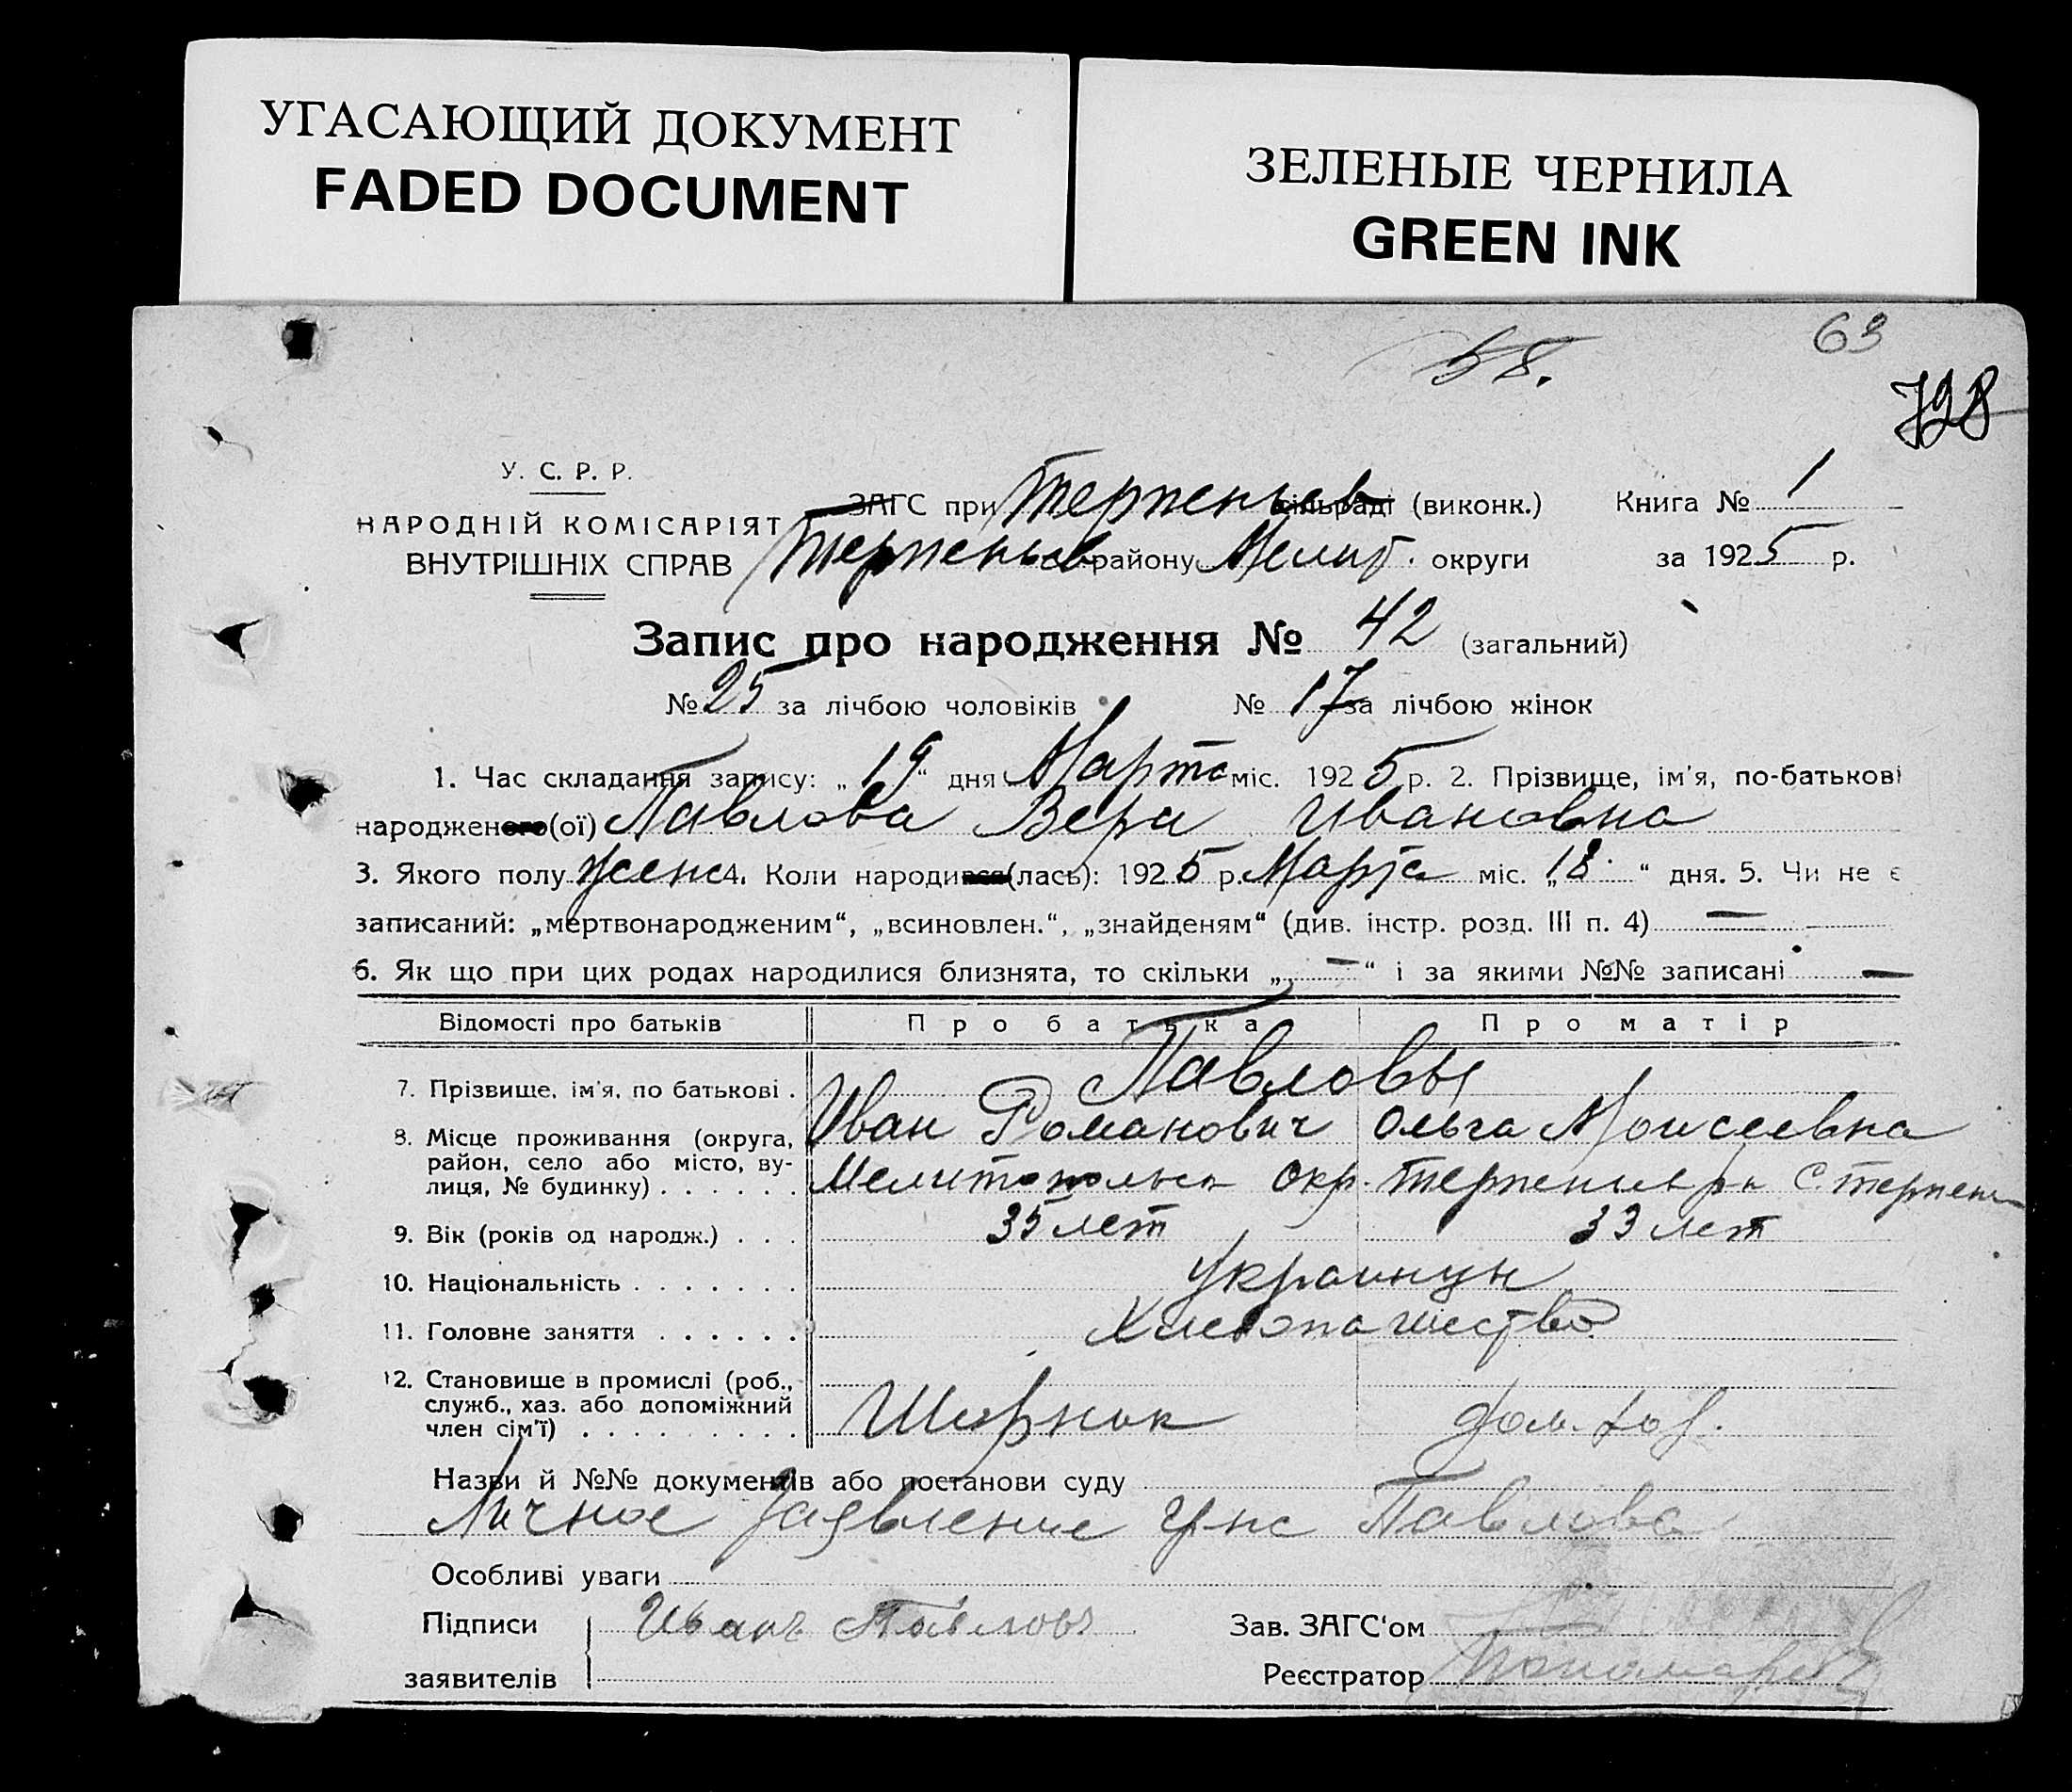 УГАСАЮЩИЙ ДОКУМЕНТ
FADED DOCUMENT
ЗЕЛЕНЫЕ ЧЕРНИЛА
GREEN INK
63
58.
728
У. С. Р. Р.
НАРОДНІЙ КОМІСАРІЯТ
ВНУТРІШНІХ СПРАВ
ЗАГС при Терпеньев сільраді (виконк.) Книга № 1
Терпеньев району Мелит. округи за 1925 р.
Запис про народження № 42 (загальний)
№ 25 за лічбою чоловіків № 17 за лічбою жінок
1. Час складання запису: „19“ дня Марта міс. 1925 р. 2. Прізвище, ім'я, по-батькові
народженого(ої) Павлова Вера Ивановна
3. Якого полу Женс 4. Коли народився(лась): 1925 р. Марта міс. „18“ дня. 5. Чи не є
записаний: „мертвонародженим“, „всиновлен.“, „знайденям“ (див. інстр. розд. III п. 4) —
6. Як що при цих родах народилися близнята, то скільки „—“ і за якими №№ записані —
Відомості про батьків Про батька Про матір
7. Прізвище, ім'я, по батькові . Павловы
Иван Романович Ольга Моисеевна
8. Місце проживання (округа,
район, село або місто, ву-
лиця, № будинку) . . . . . . Мелитопольск окр. Терпеньев рн С. Терпень
9. Вік (років од народж.) . . . 35 лет 33 лет
10. Національність . . . . . . . Украинцы
11. Головне заняття . . . . . . Хлебопашество
12. Становище в промислі (роб.,
служб., хаз. або допоміжний
член сім'ї) . . . . . . . . . дом. хоз.
Назви й №№ документів або постанови суду
Личное заявление гр-на Павлова
Особливі уваги
Підписи Иванъ Павловъ Зав. ЗАГС'ом
заявителів Реєстратор